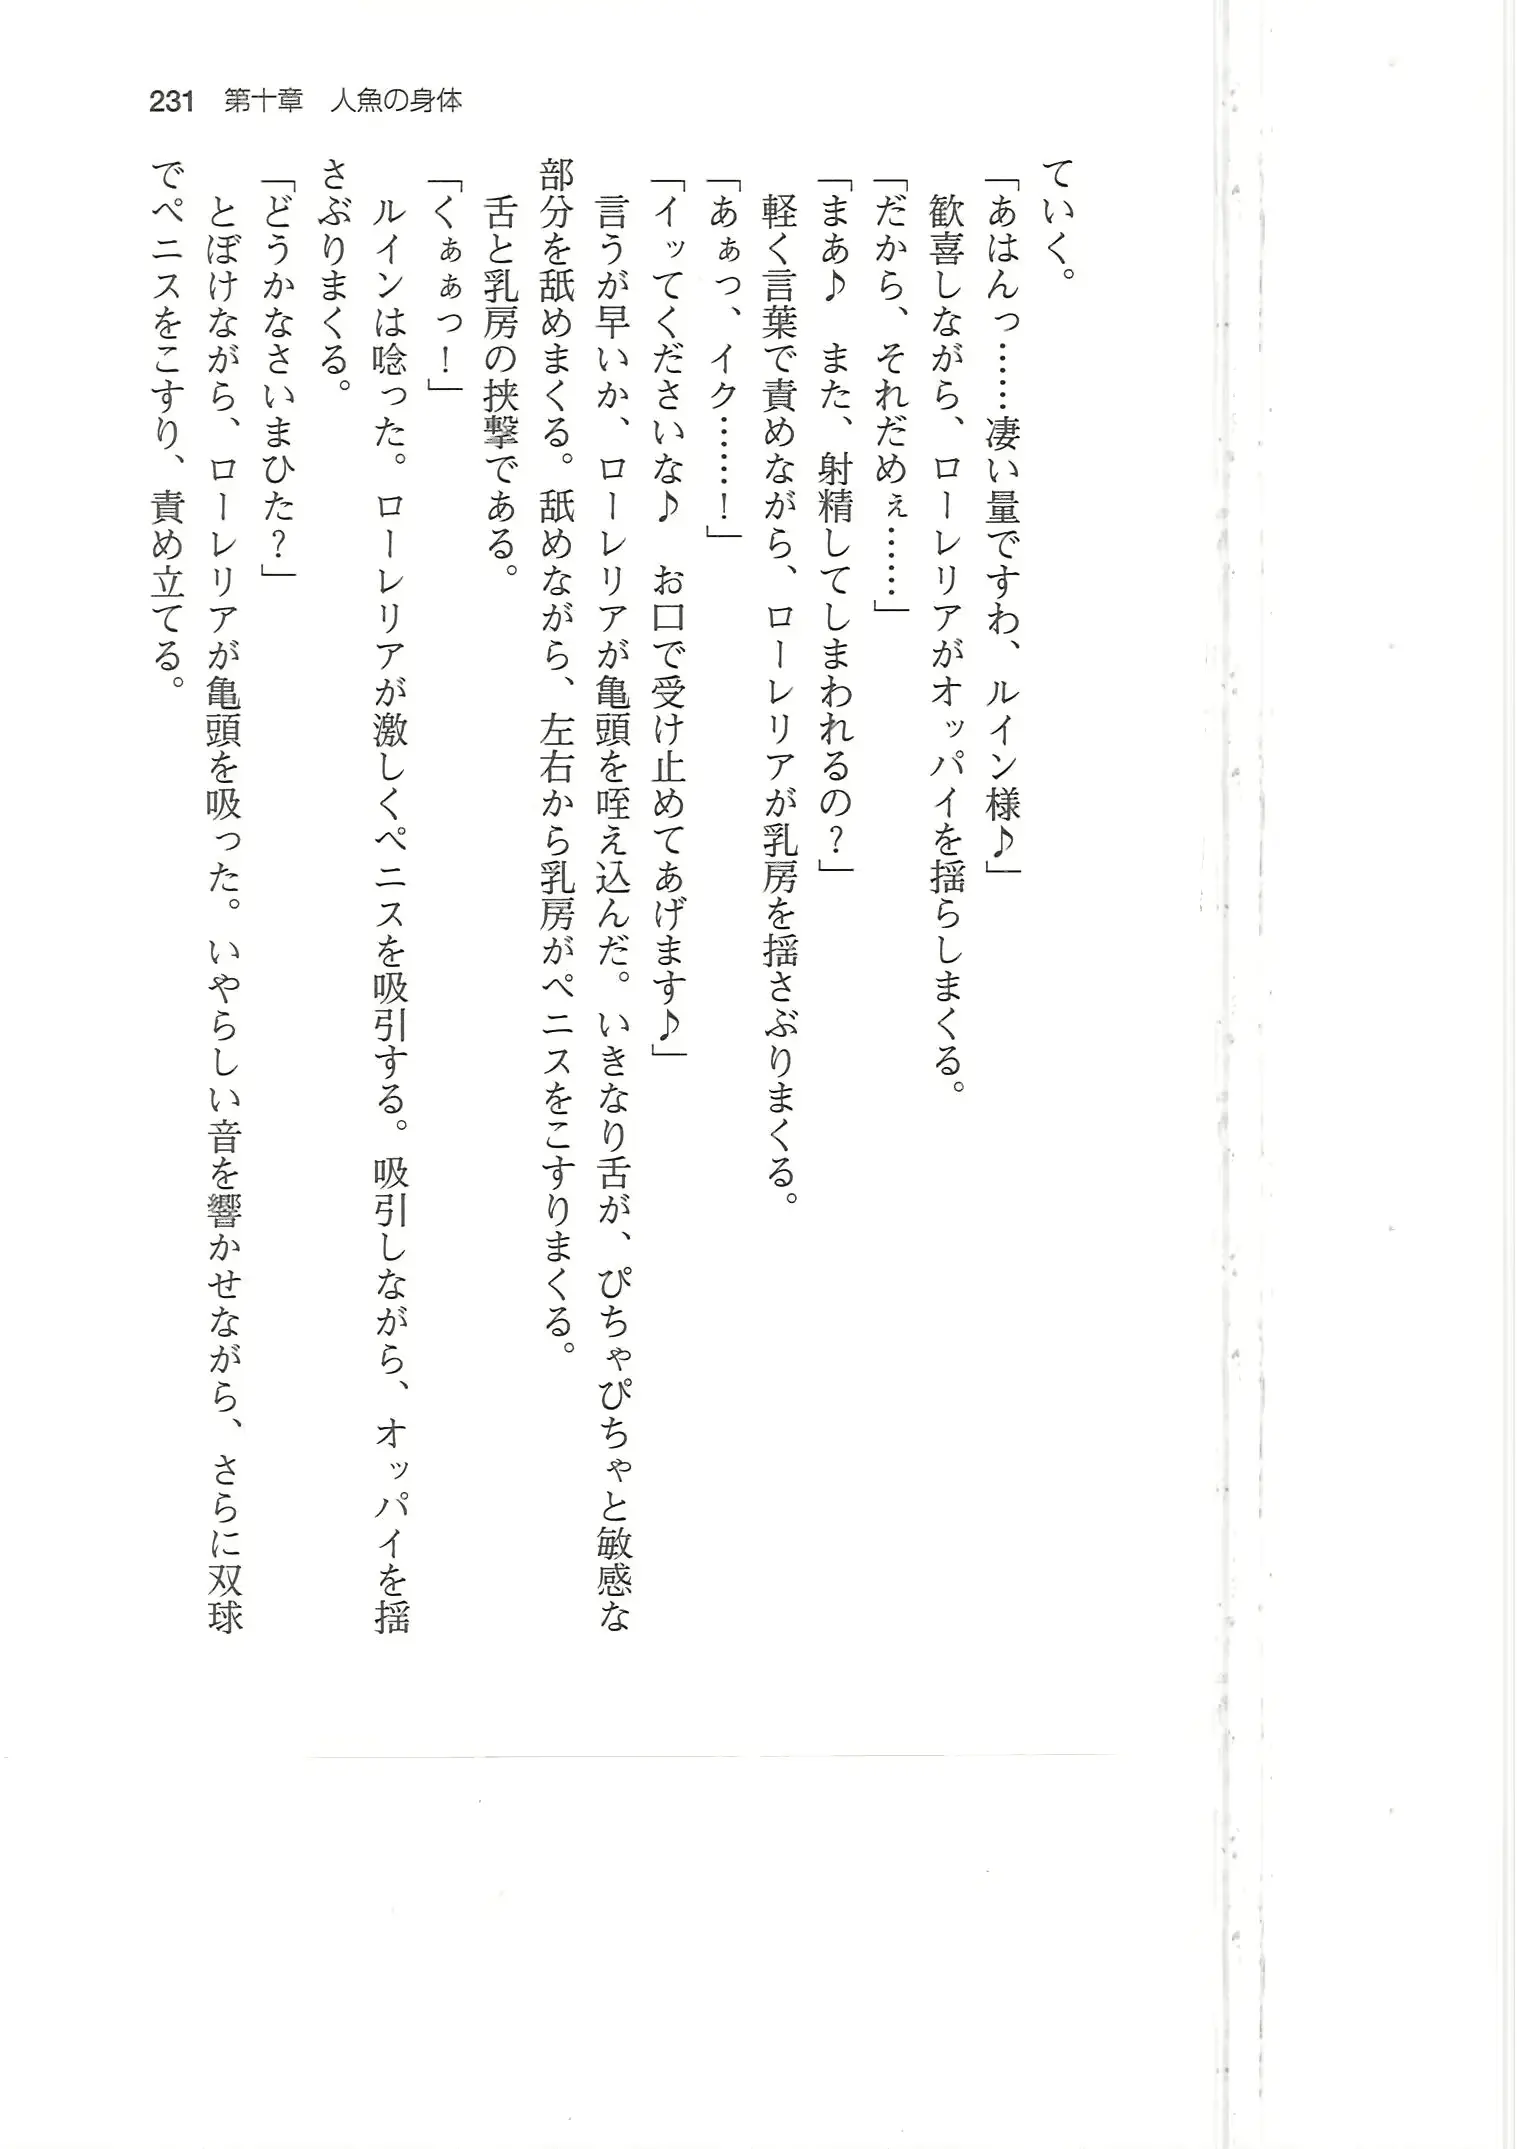 231 第十章 人魚の身体
ていく。
「あはんっ……凄い量ですわ、ルイン様♪」
歓喜しながら、ローレリアがオッパイを揺らしまくる。
「だから、それだめぇ……」
「まあ♪ また、射精してしまわれるの？」
軽く言葉で責めながら、ローレリアが乳房を揺さぶりまくる。
「あぁっ、イク……！」
「イッてくださいな♪ お口で受け止めてあげます♪」
言うが早いか、ローレリアが亀頭を咥え込んだ。いきなり舌が、ぴちゃぴちゃと敏感な
部分を舐めまくる。舐めながら、左右から乳房がペニスをこすりまくる。
舌と乳房の挟撃である。
「くぁぁっ！」
ルインは唸った。ローレリアが激しくペニスを吸引する。吸引しながら、オッパイを揺
さぶりまくる。
「どうかなさいまひた？」
とぼけながら、ローレリアが亀頭を吸った。いやらしい音を響かせながら、さらに双球
でペニスをこすり、責め立てる。